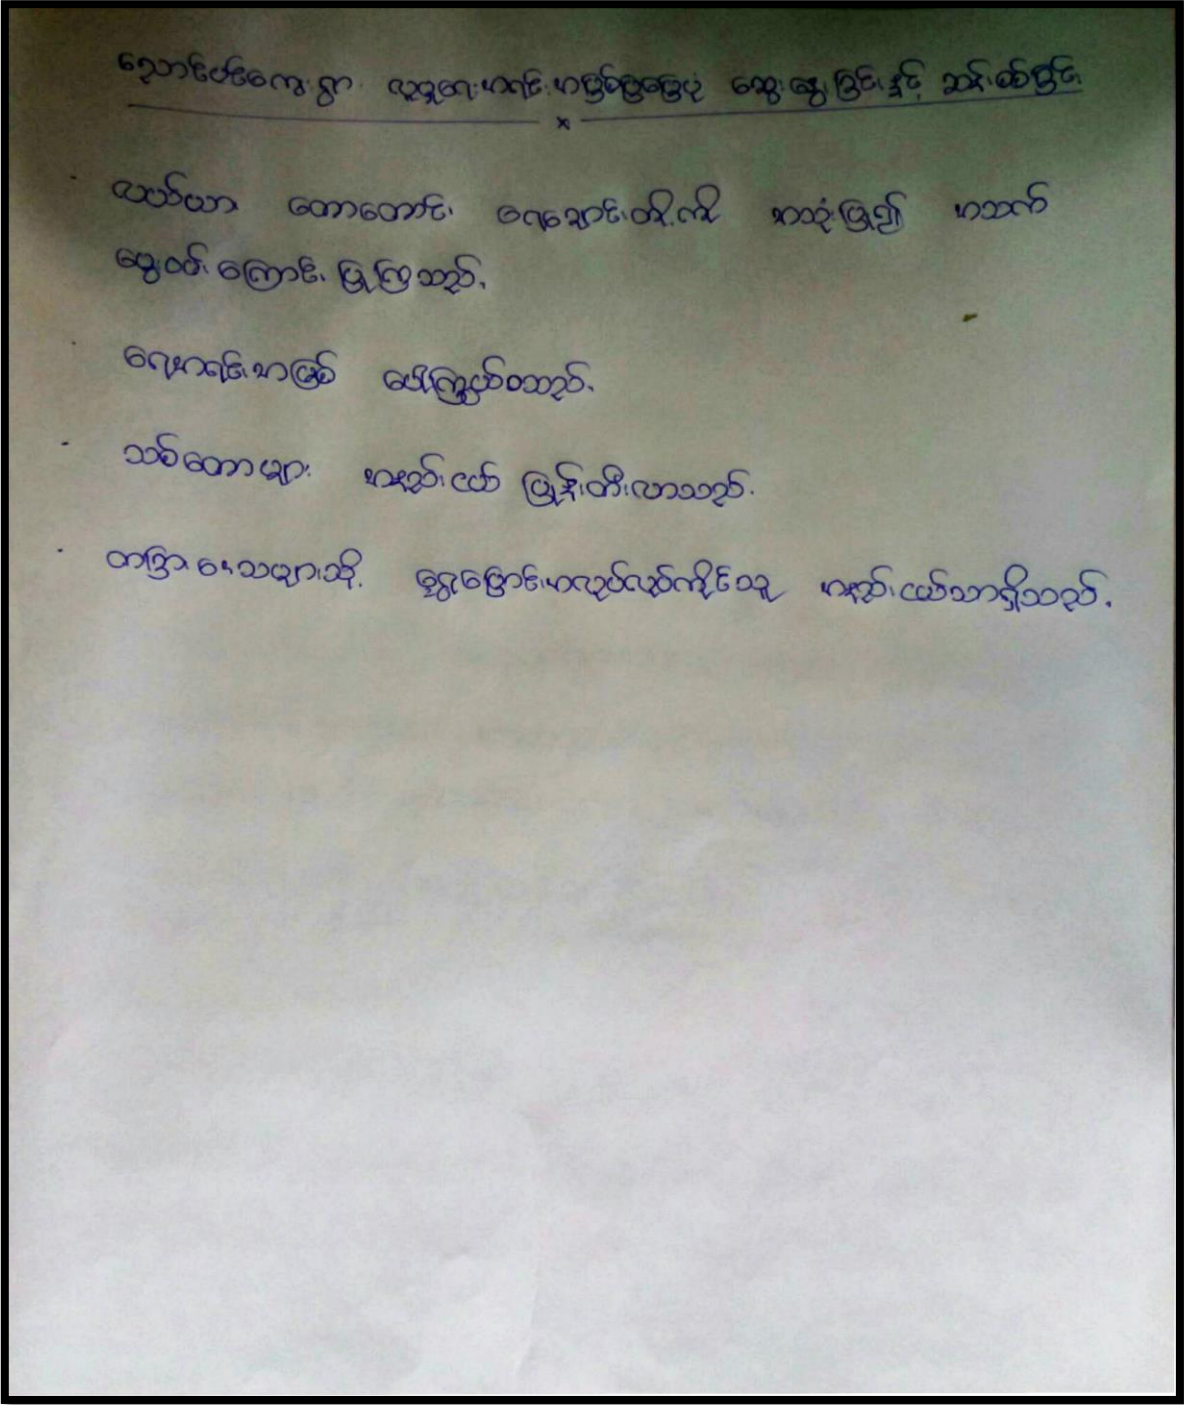 ညောင်ပင်ကျေးရွာ လူမှုရေးအရင်းအမြစ်ပြမြေပုံ ဆွေးနွေးခြင်းနှင့် ဆန်းစစ်ခြင်း
လယ်ယာ တောတောင် ရေချောင်းတို့ကို အသုံးပြု၍ အသက်
မွေးဝမ်းကြောင်း ပြုကြသည်.
ရေအရင်းအမြစ် ပေါကြွယ်ဝသည်.
သစ်တောများ အနည်းငယ် ပြုန်းတီးလာသည်.
တခြားဒေသများသို့ ရွှေ့ပြောင်းအလုပ်လုပ်ကိုင်သူ အနည်းငယ်သာရှိသည်.